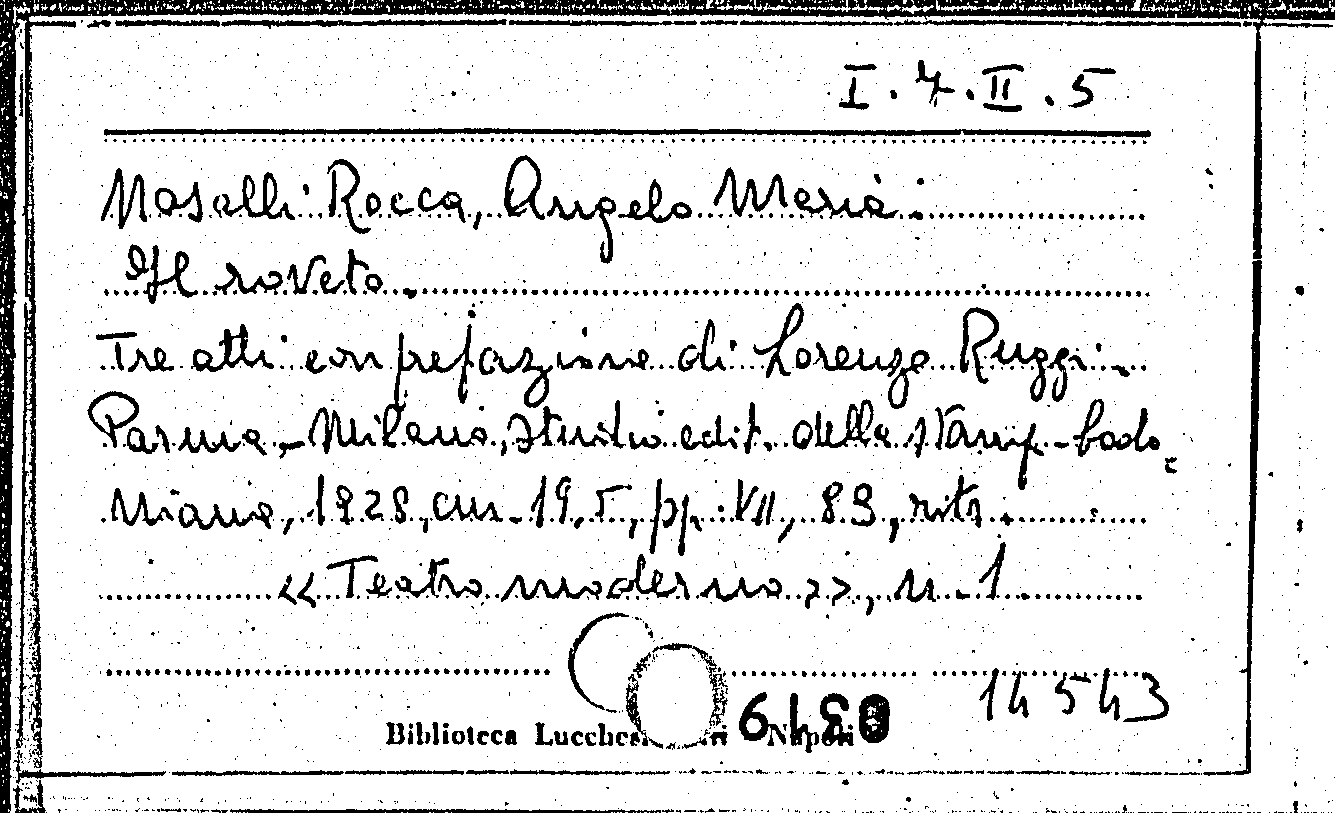 I.4.II.5
Nasalli Rocca, Angelo Maria.
Il roveto.
Tre atti con prefazione di Lorenzo Ruggi.
Parma-Milano, Studio edit. della stamp. bodo=
niana, 1928, cm. 19,5, pp. VII, 89, ritr.
<< Teatro moderno >>, n. 1
14543
Biblioteca Napoli